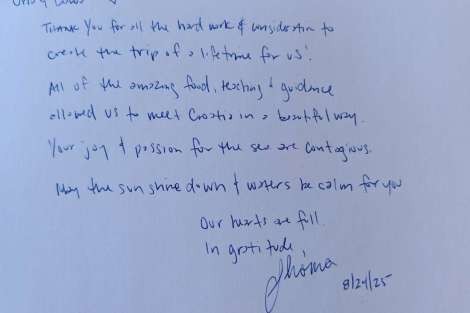 Thank you for all the hard work & consideration to
create the trip of a lifetime for us!
All of the amazing food, teaching & guidance
allowed us to meet Croatia in a beautiful way.
Your joy & passion for the sea are contagious.
May the sun shine down & waters be calm for you
Our hearts are full.
In gratitude
8/24/25